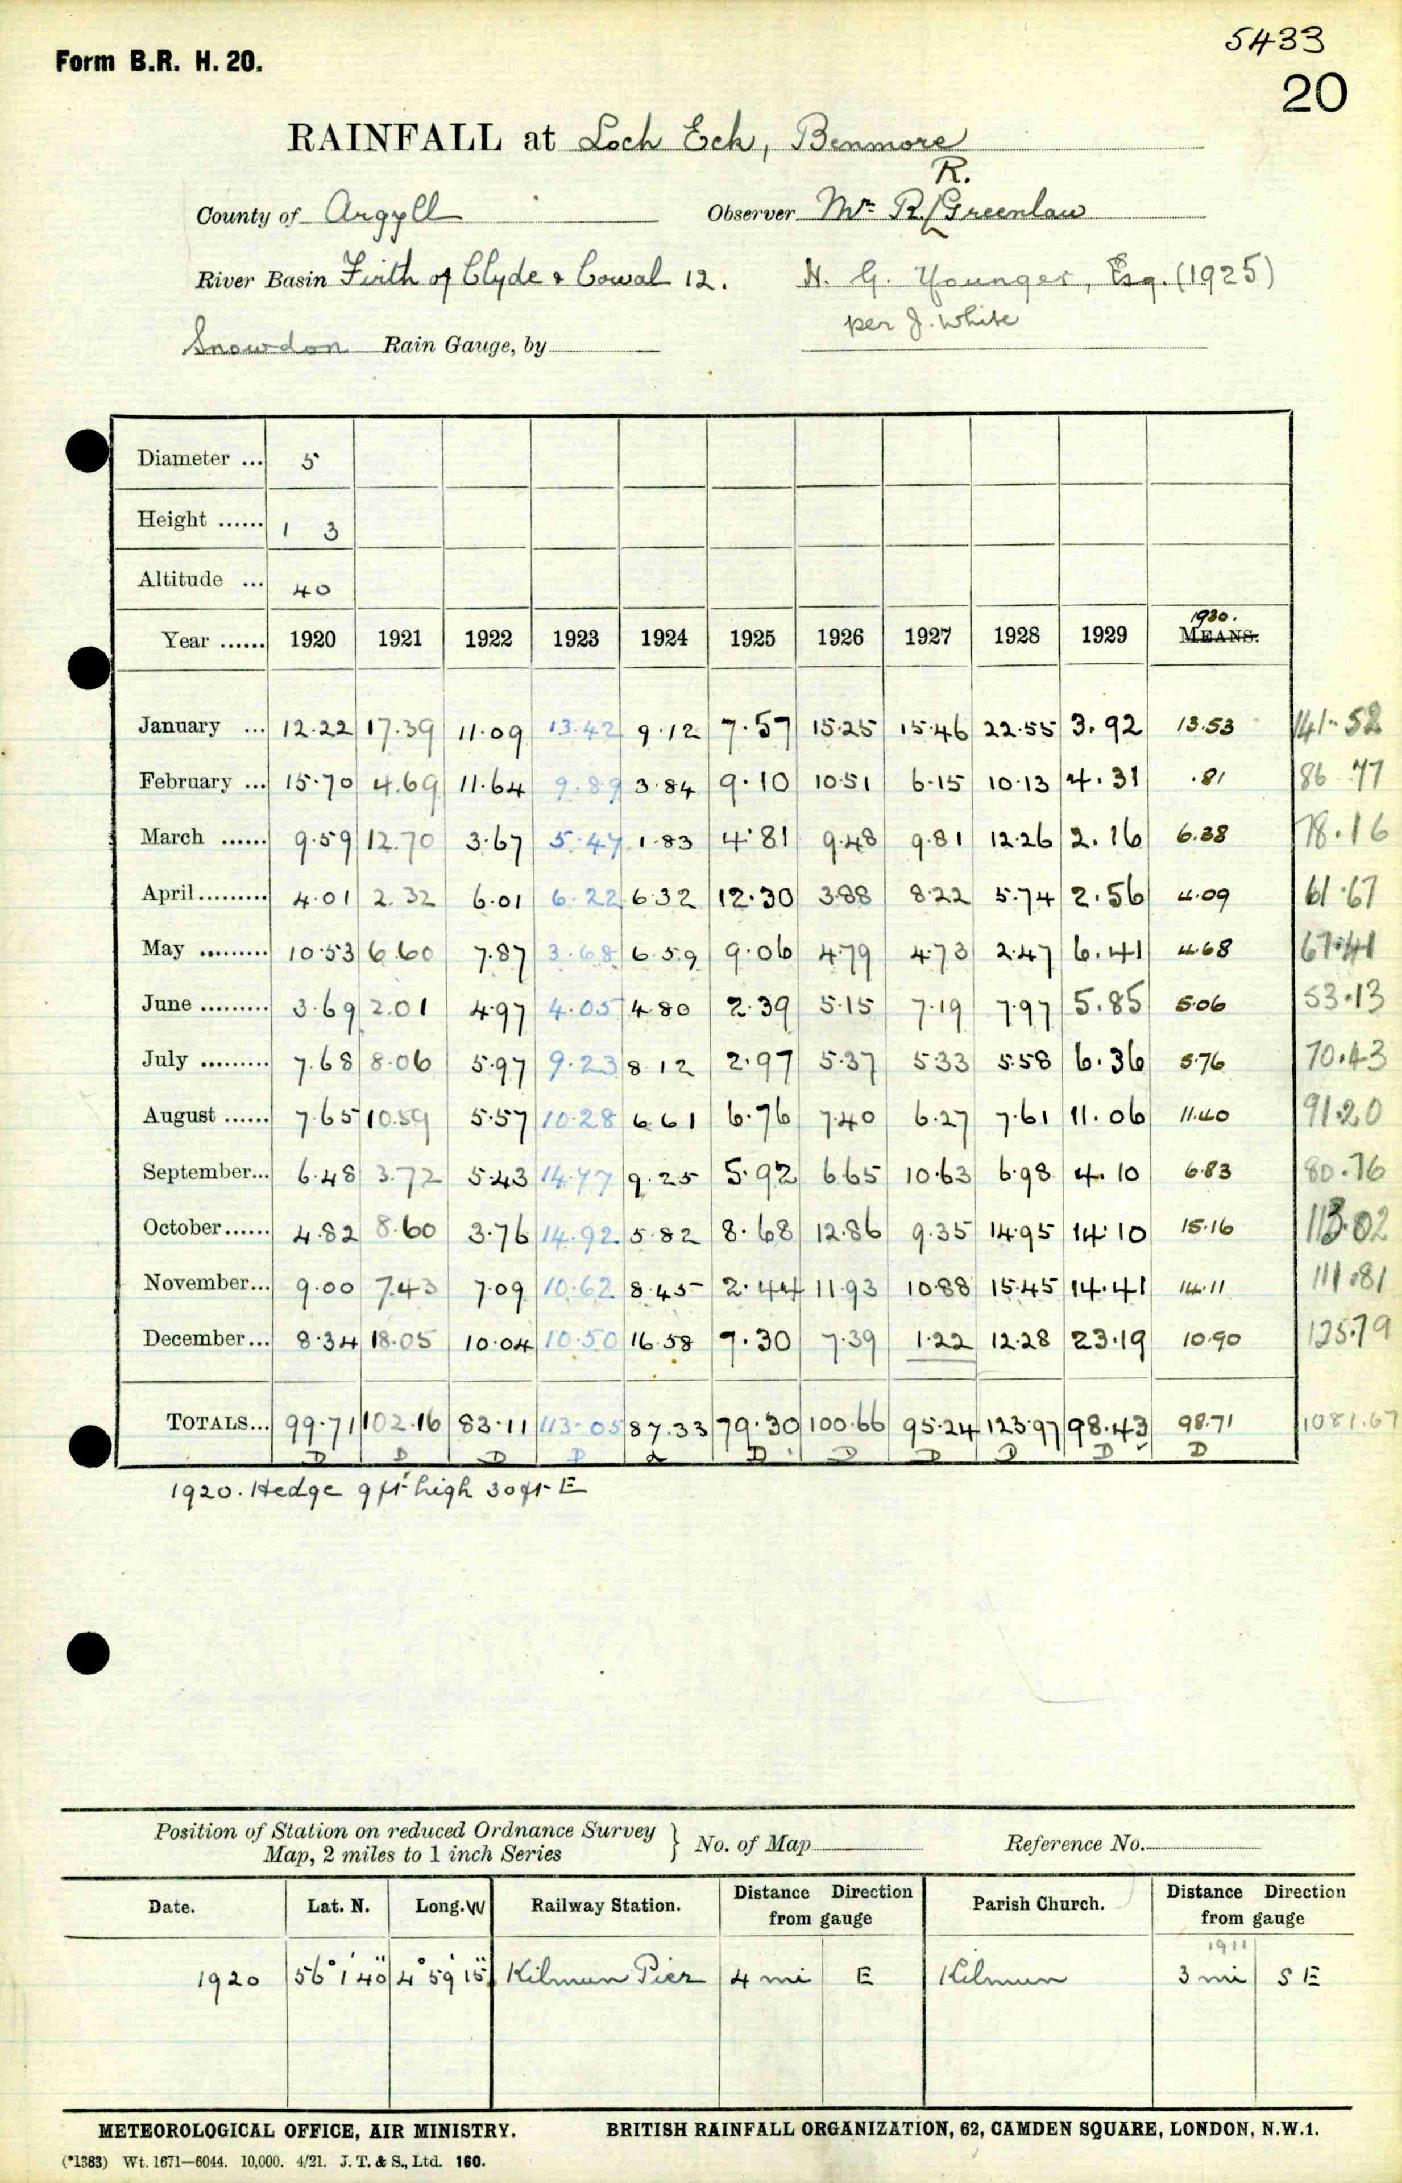 5433
Form B.R. H. 20.
20
RAINFALL at Loch Eck, Benmore
R.
County of Argyll Observer Mr R. Greenlaw
River Basin Firth of Clyde & Cowal 12. H. G. Younger, Esq. (1925)
per J. White
Snowdon Rain Gauge, by
Diameter ... 5
Height ...... 1 3
Altitude ... 40
1930.
Year ...... 1920 1921 1922 1923 1924 1925 1926 1927 1928 1929 MEANS.
January ... 12.22 17.39 11.09 13.42 9.12 7.57 15.25 15.46 22.55 3.92 13.53 141.52
February ... 15.70 4.69 11.64 9.89 3.84 9.10 10.51 6.15 10.13 4.31 .81 86.77
March ...... 9.59 12.70 3.67 5.47 1.83 4.81 9.48 9.81 12.26 2.16 6.38 78.16
April......... 4.01 2.32 6.01 6.22 6.32 12.30 3.88 8.22 5.74 2.56 4.09 61.67
May ......... 10.53 6.60 7.87 3.68 6.59 9.06 4.79 4.73 2.47 6.41 4.68 67.41
June ......... 3.69 2.01 4.97 4.05 4.80 2.39 5.15 7.19 7.97 5.85 5.06 53.13
July ......... 7.68 8.06 5.97 9.23 8.12 2.97 5.37 5.33 5.58 6.36 5.76 70.43
August ...... 7.65 10.59 5.57 10.28 6.61 6.76 7.40 6.27 7.61 11.06 11.40 91.20
September... 6.48 3.72 5.43 14.77 9.25 5.92 6.65 10.63 6.98 4.10 6.83 80.76
October...... 4.82 8.60 3.76 14.92 5.82 8.68 12.86 9.35 14.95 14.10 15.16 113.02
November... 9.00 7.43 7.09 10.62 8.45 2.44 11.93 10.88 15.45 14.41 14.11 111.81
December... 8.34 18.05 10.04 10.50 16.58 7.30 7.39 1.22 12.28 23.19 10.90 125.79
TOTALS... 99.71 102.16 83.11 113.05 87.33 79.30 100.66 95.24 123.97 98.43 98.71 1081.67
D D D D D D D D D D
1920. Hedge 9 ft high 30 ft E
Position of Station on reduced Ordnance Survey
Map, 2 miles to 1 inch Series } No. of Map Reference No.
Date. Lat. N. Long. W Railway Station. Distance Direction from gauge Parish Church. Distance Direction from gauge
1911
1920 56° 1' 40" 4° 59' 15" Kilmun Pier 4 mi E Kilmun 3 mi S E
METEOROLOGICAL OFFICE, AIR MINISTRY. BRITISH RAINFALL ORGANIZATION, 62, CAMDEN SQUARE, LONDON, N.W.1.
(*1383) Wt. 1671—6044. 10,000. 4/21. J. T. & S., Ltd. 160.